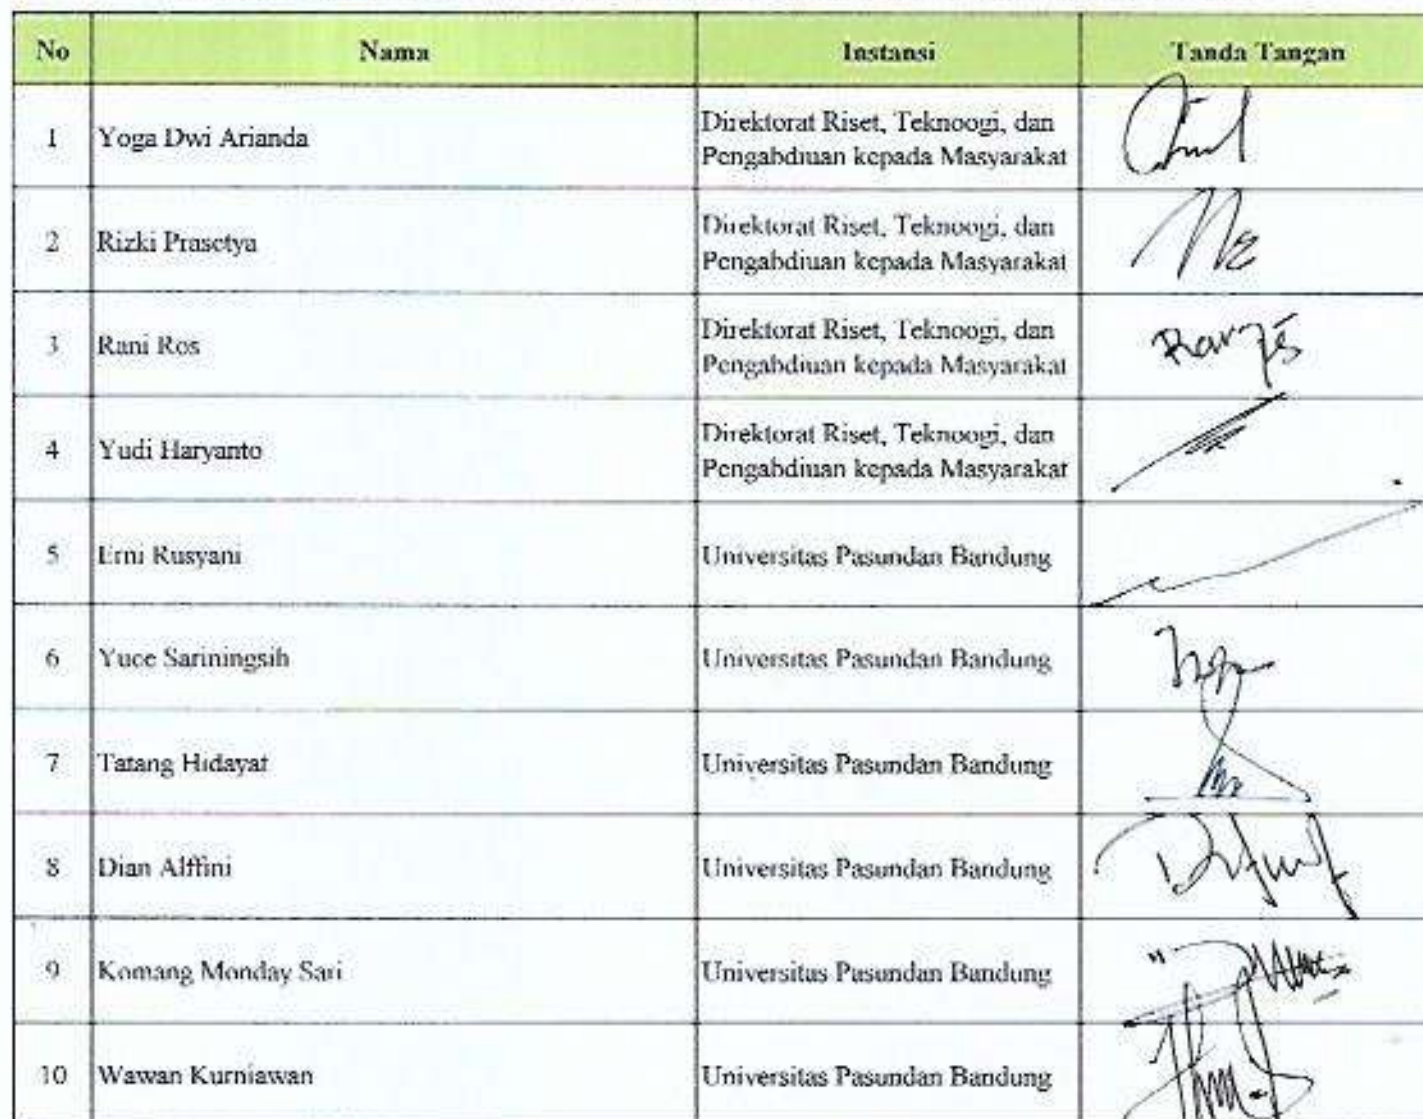 No Nama Instansi Tanda Tangan
1 Yoga Dwi Arianda Direktorat Riset, Teknoogi, dan
Pengabdiuan kepada Masyarakat
2 Rizki Prasetya Direktorat Riset, Teknoogi, dan
Pengabdiuan kepada Masyarakat
3 Rani Ros Direktorat Riset, Teknoogi, dan
Pengabdiuan kepada Masyarakat
4 Yudi Haryanto Direktorat Riset, Teknoogi, dan
Pengabdiuan kepada Masyarakat
5 Erni Rusyani Universitas Pasundan Bandung
6 Yuce Sariningsih Universitas Pasundan Bandung
7 Tatang Hidayat Universitas Pasundan Bandung
8 Dian Alffini Universitas Pasundan Bandung
9 Komang Monday Sari Universitas Pasundan Bandung
10 Wawan Kurniawan Universitas Pasundan Bandung